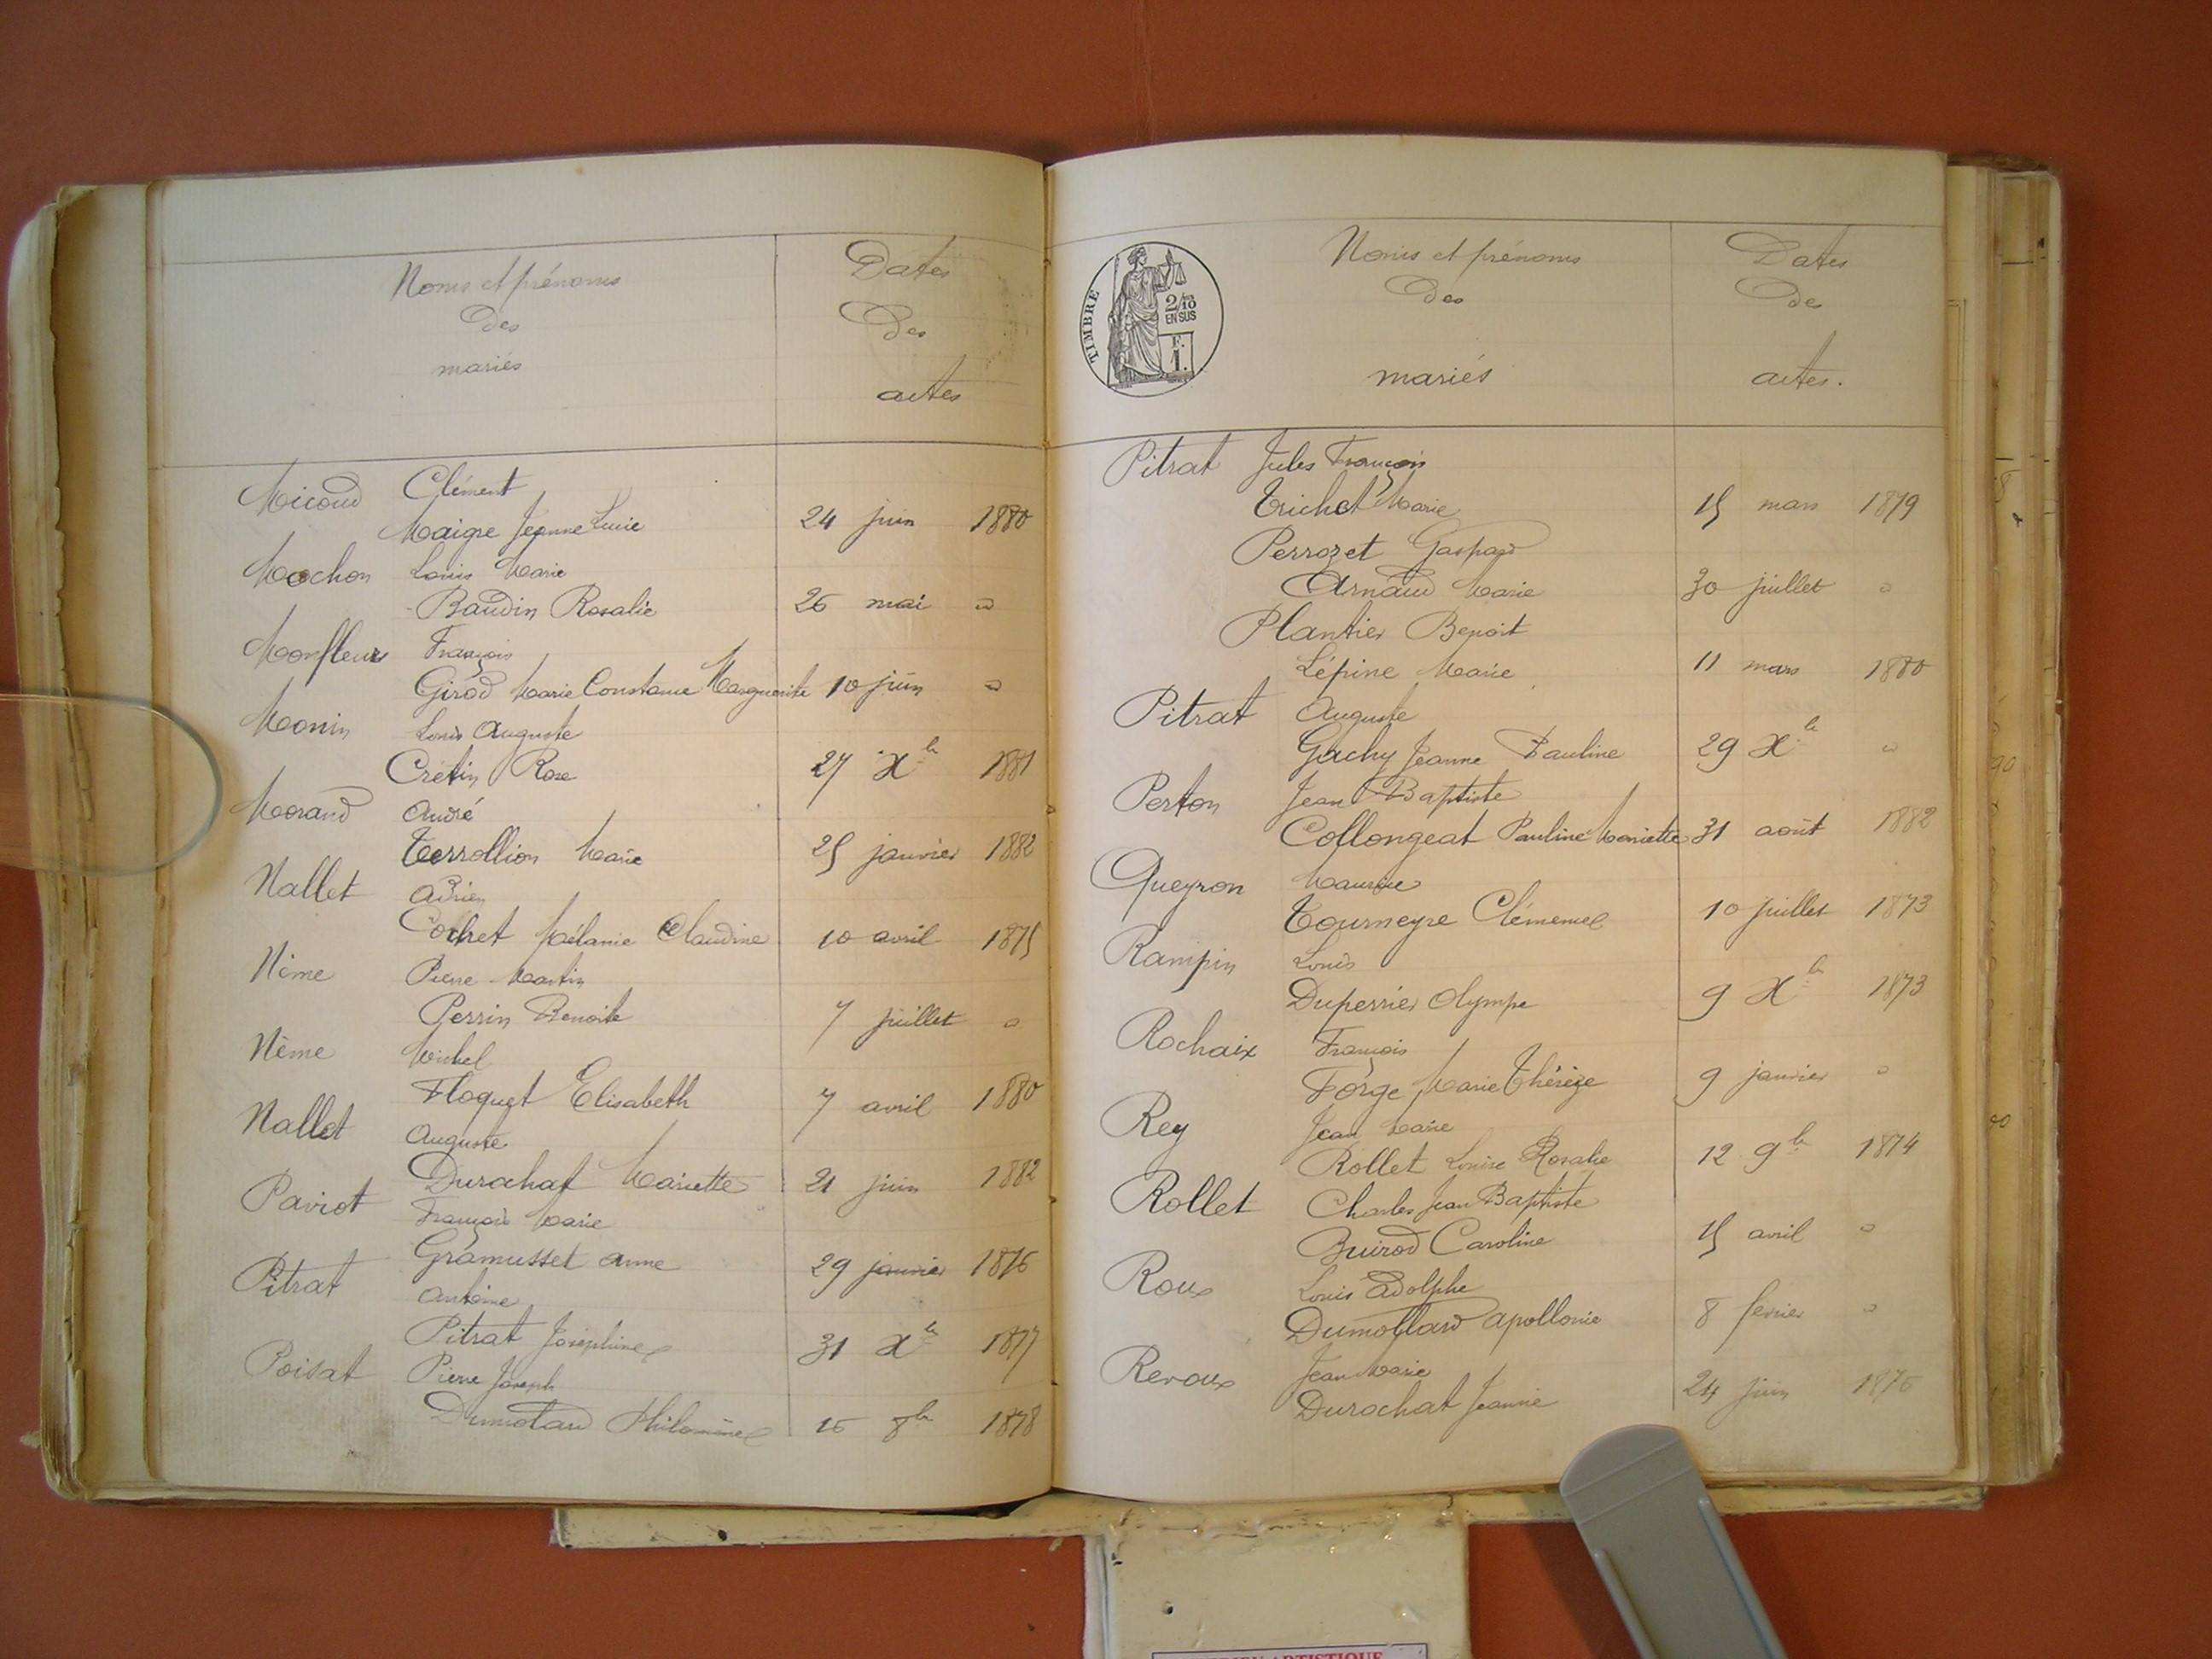 Noms et prénoms
des
mariés
Dates
des
actes
Micoud Clément
Maigre Jeanne Lucie 24 juin 1880
Mochon Louis Marie
Baudin Rosalie 26 mai "
Monfleur François
Girod Marie Constance Marguerite 10 juin "
Monin Louis Auguste
Crétin Rose 27 Xbre 1881
Morand André
Terrollion Marie 25 janvier 1882
Nallet Adrien
Cochet Mélanie Claudine 10 avril 1875
Nème Pierre Martin
Perrin Benoite 7 juillet "
Nème Michel
Floquet Elisabeth 7 avril 1880
Nallet Auguste
Durochat Mariette 21 juin 1882
Paviot François Marie
Gramusset Anne 29 janvier 1876
Pitrat Antoine
Pitrat Joséphine 31 Xbre 1877
Poisat Pierre Joseph
Dumolard Philomène 16 8bre 1878
TIMBRE
2/10es
EN SUS
F.
1.
Noms et prénoms
des
mariés
Dates
de
actes.
Pitrat Jules François
Trichet Marie 15 mars 1879
Perrozet Gaspard
Arnaud Marie 30 juillet "
Plantier Benoit
Lépine Marie 11 mars 1880
Pitrat Auguste
Gachy Jeanne Pauline 29 Xbre "
Perton Jean Baptiste
Collongeat Pauline Mariette 31 août 1882
Queyron Maurice
Tourneyre Clémence 10 juillet 1873
Rampin Louis
Duperrier Olympe 9 Xbre 1873
Rochaix François
Forge Marie Thérèze 9 janvier "
Rey Jean Marie
Rollet Louise Rosalie 12 9bre 1874
Rollet Charles Jean Baptiste
Buirod Caroline 15 avril "
Roux Louis Adolphe
Dumollard Apollonie 8 fevrier "
Revoux Jean Marie
Durochat Jeannie 24 juin 1876